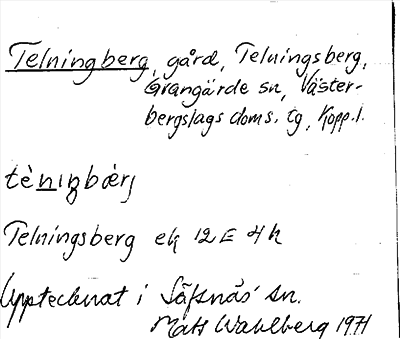 Telningberg, gård, Telningsberg,
Grangärde sn, Väster-
bergslags doms. tg, Kopp. l.
tèniŋbærj
Telningsberg ek 12 E 4 h
Upptecknat i Säfsnäs sn.
Mats Wahlberg 1971